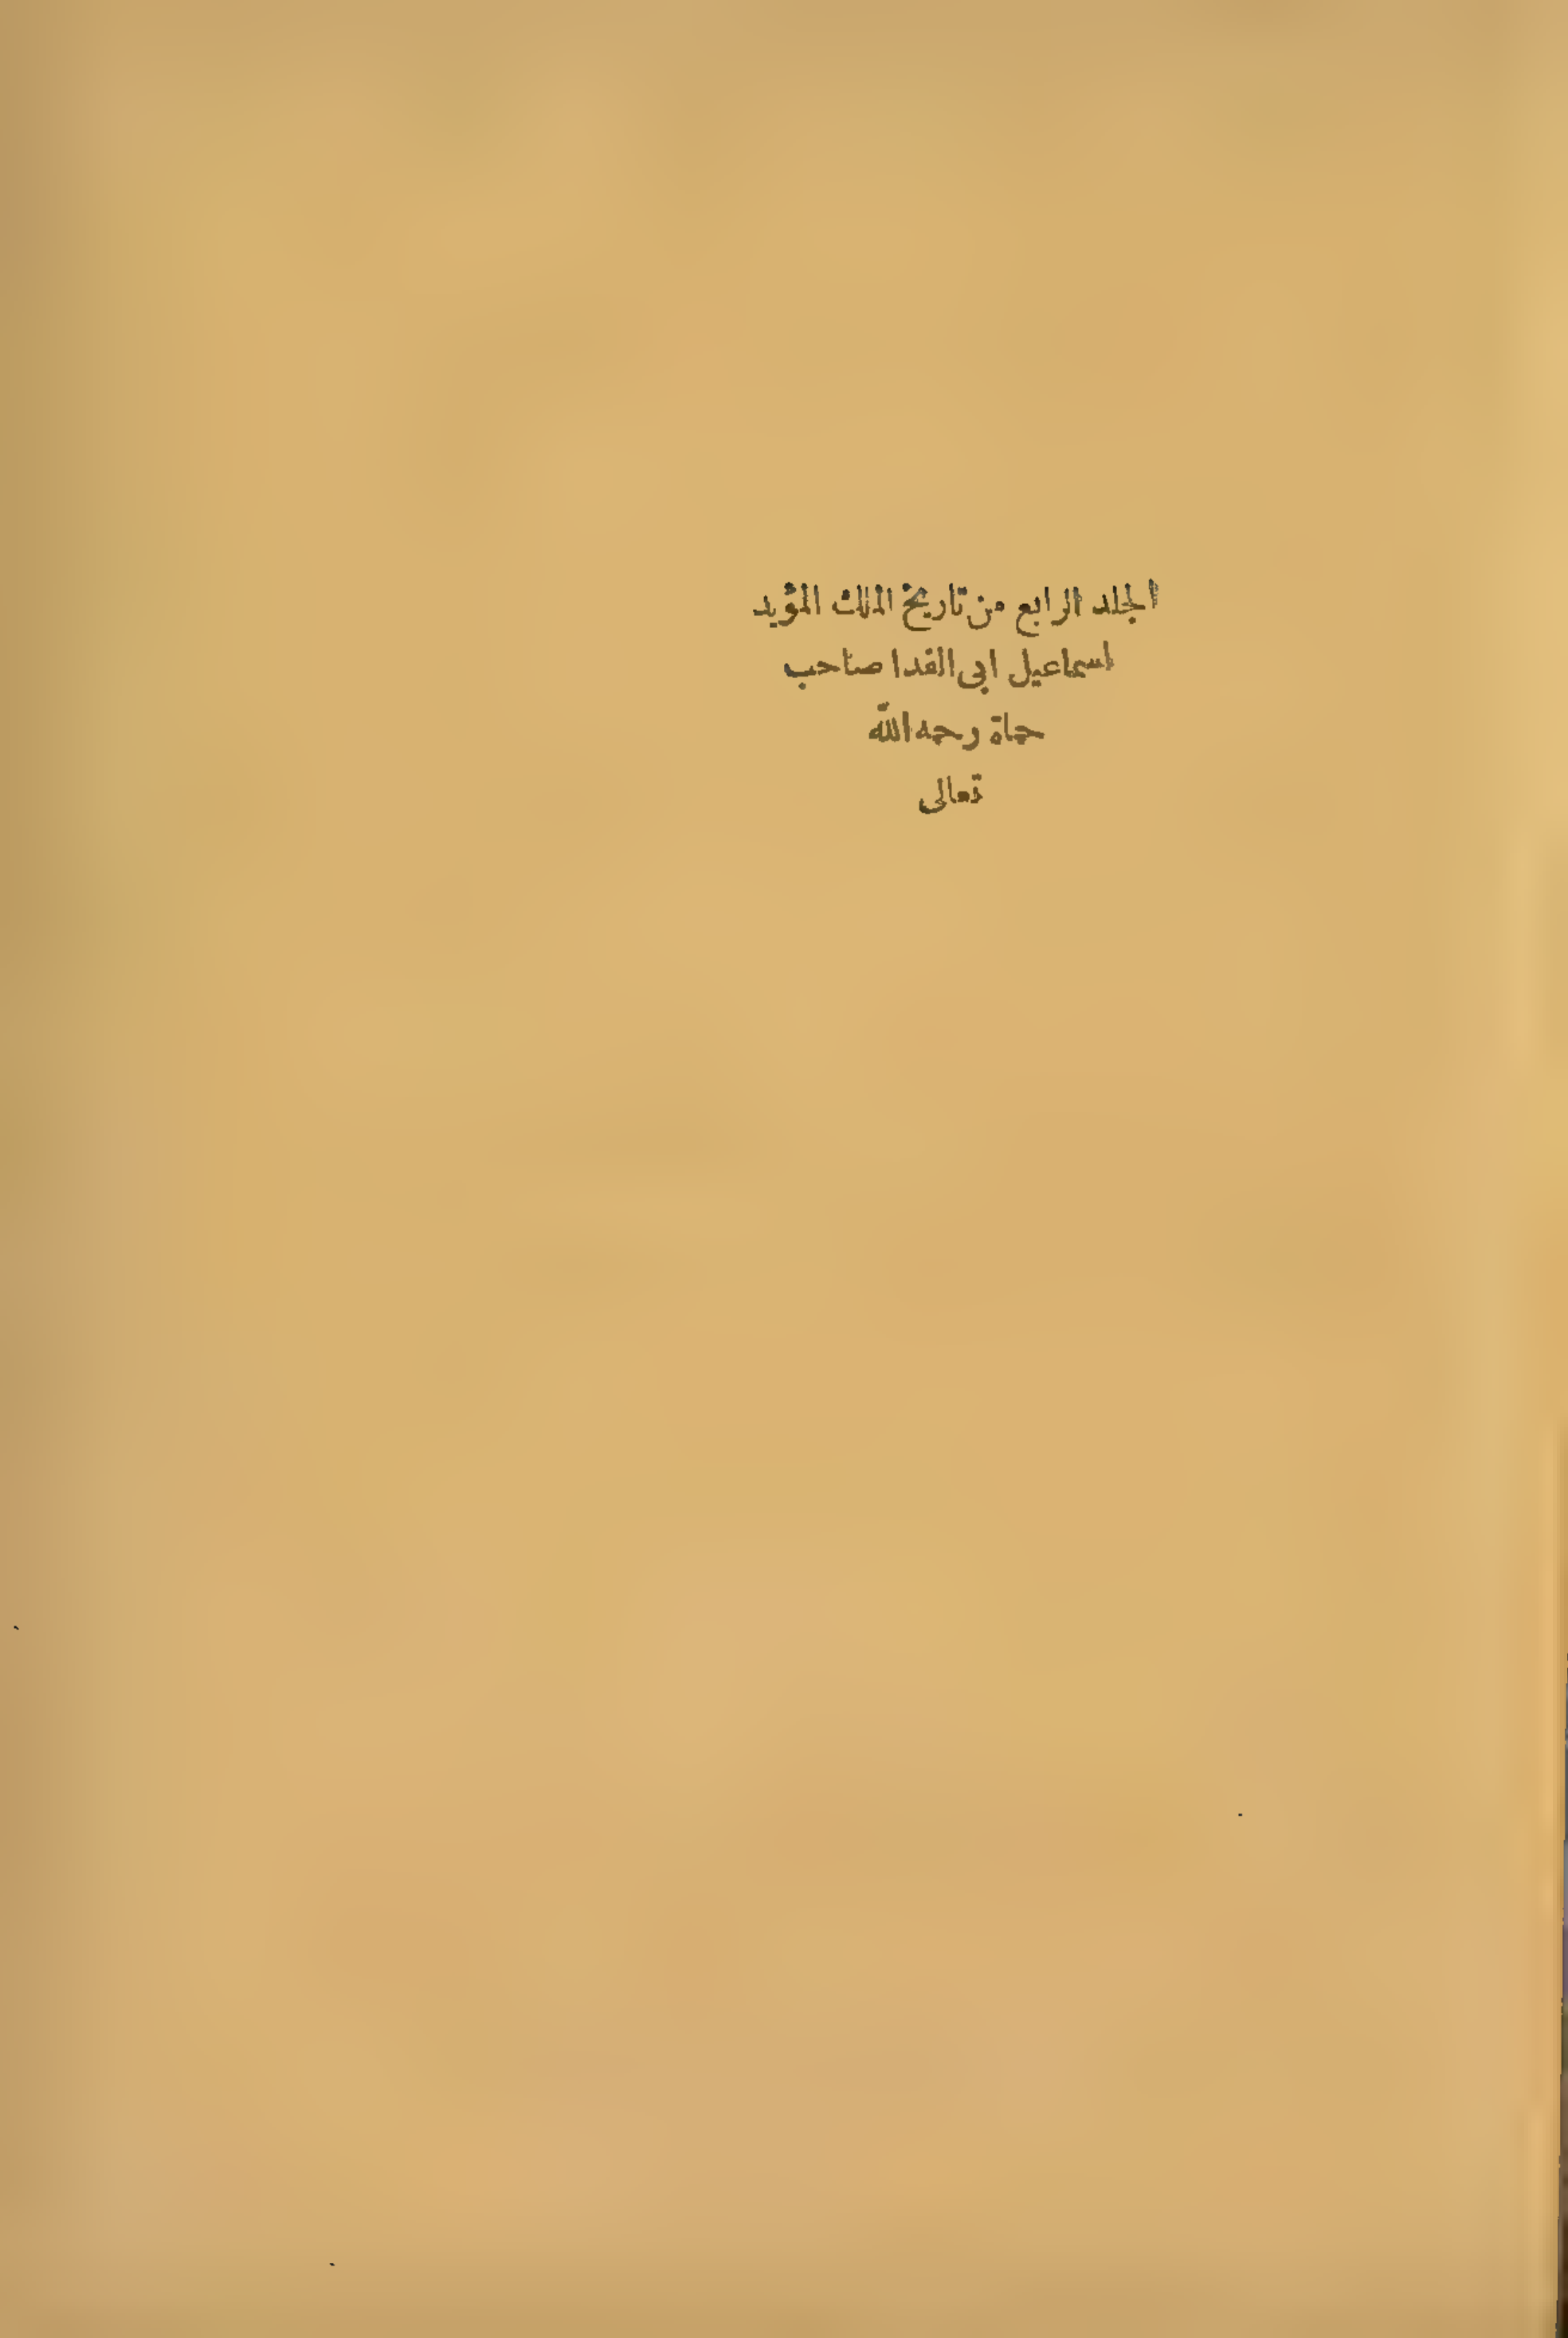 الجلد الرابع من تاريخ الملك المؤيد
اسماعيل ابى الفدا صاحب
حماة رحمه الله
تعالى